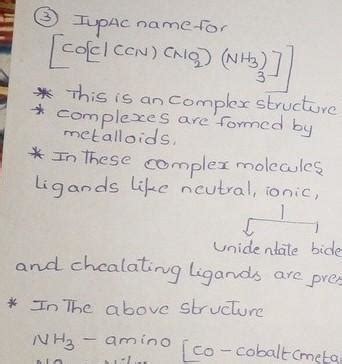 ③ IupAc name for
[CO[Cl CCN) CNO2) (NH3)3]]
* This is an complex structure
* complexes are formed by
metalloids.
* In These complex molecules
Ligands like neutral, ionic,
unidentate bide
and chealating ligands are pres
* In The above structure
NH3 - amino [co - cobalt (meta